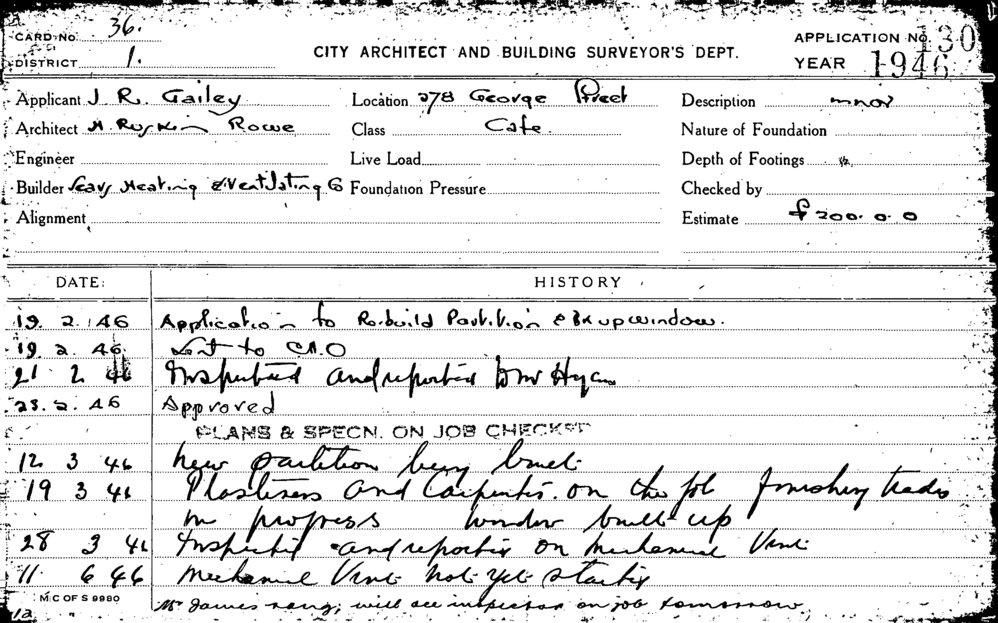 CARD No. 36.
DISTRICT 1.
CITY ARCHITECT AND BUILDING SURVEYOR'S DEPT.
APPLICATION No. 130
YEAR 1946
Applicant J. R. Gailey
Location 278 George Street
Description minor
Architect H. Ruskin Rowe
Class Cafe.
Nature of Foundation
Engineer
Live Load
Depth of Footings
Builder Heating & Ventilating
Foundation Pressure
Checked by
Alignment
Estimate £ 200. 0. 0
DATE:
HISTORY
19. 2. 46 Application to Rebuild Partition & Bk up window.
19. 2. 46. Sent to
21 2 46 Inspected and reported
25. 2. 46 Approved
PLANS & SPECN. ON JOB CHECKED
12 3 46 New partition being built
19 3 46 Plasterers and Carpenters on the job finishing trades
in progress window built up
28 3 46 Inspected and reported on Mechanical Vent
11 6 46 Mechanical Vent not yet started
M.C OF S 9980
Mr James rang, will see inspector on job tomorrow.
12